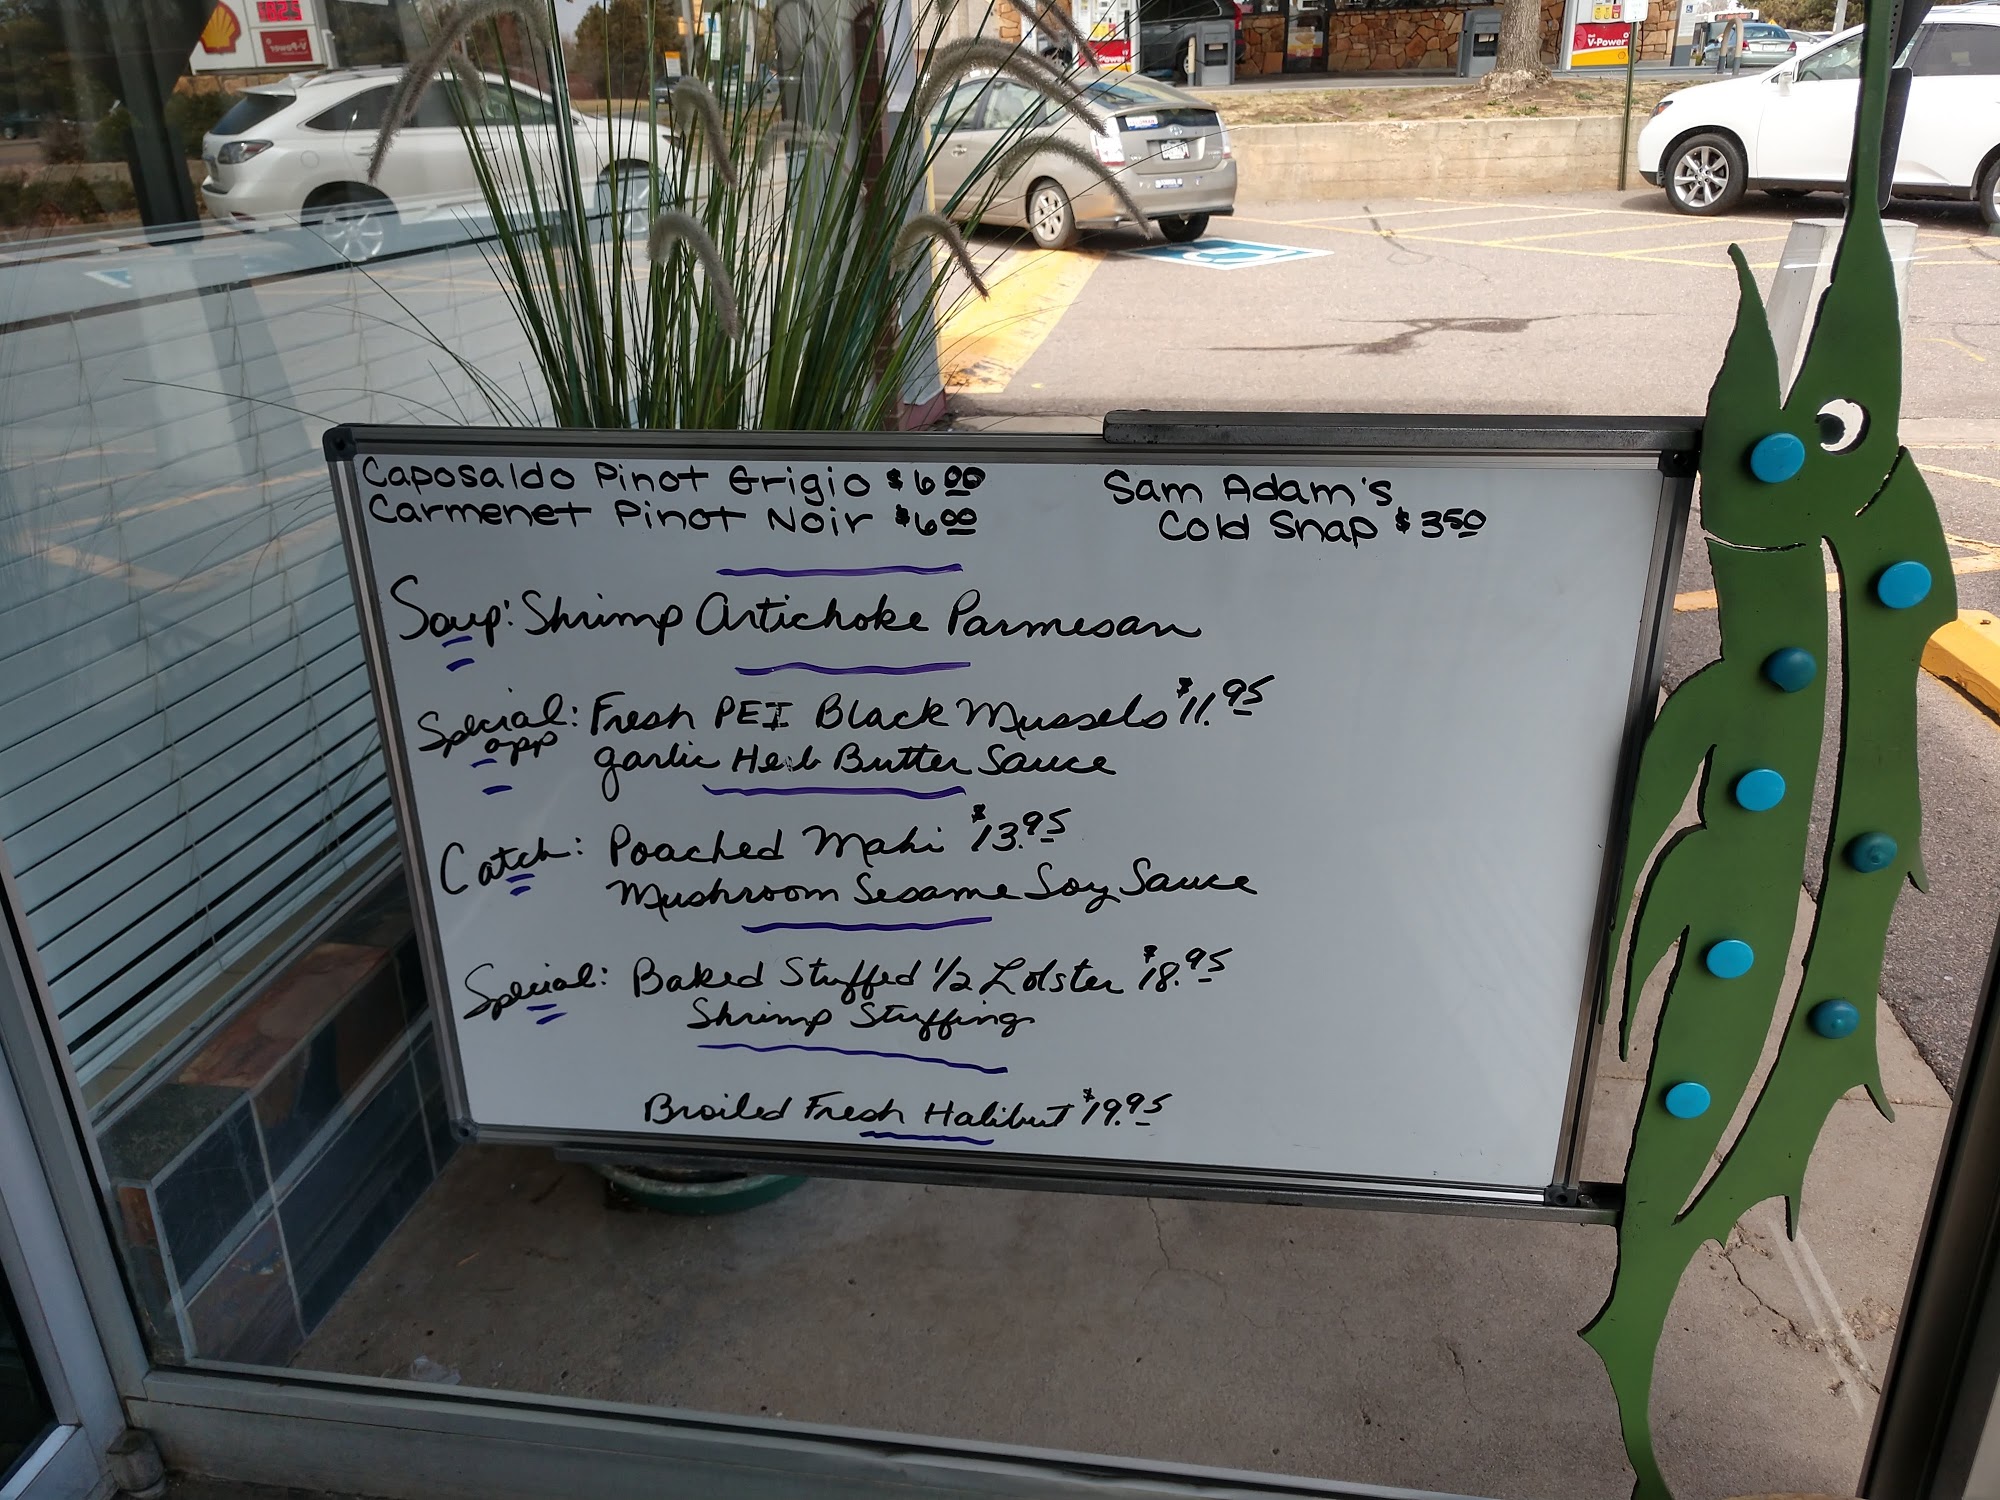 V-Power
V-Power
Caposaldo Pinot Grigio $6.00
Carmenet Pinot Noir $6.00
Sam Adam's
Cold Snap $3.50
Soup: Shrimp Artichoke Parmesan
Special: Fresh PEI Black Mussels $11.95
app
garlic Herb Butter Sauce
Catch: Poached Mahi $13.95
Mushroom Sesame Soy Sauce
Special: Baked Stuffed 1/2 Lobster $18.95
Shrimp Stuffing
Broiled Fresh Halibut $19.95